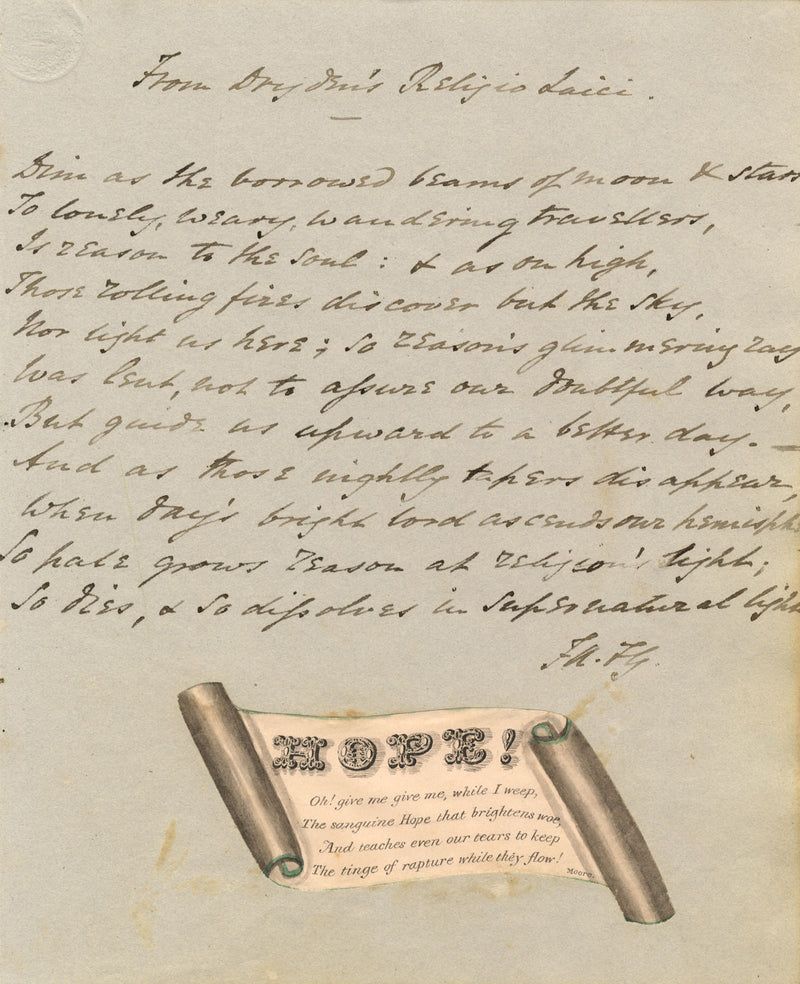 From Dryden's Religio Laici.
Dim as the borrowed beams of moon & stars
To lonely, weary, wandering travellers,
Is reason to the soul: & as on high,
Those rolling fires discover but the sky,
Nor light us here; so reason's glimmering ray
Was lent, not to assure our doubtful way,
But guide us upward to a better day. —
And as those nightly tapers disappear,
When day's bright lord ascends our hemisph
So pale grows reason at religion's light;
So dies, & so dissolves in supernatural light
HOPE!
Oh! give me give me, while I weep,
The sanguine Hope that brightens woe,
And teaches even our tears to keep
The tinge of rapture while they flow!
Moore.